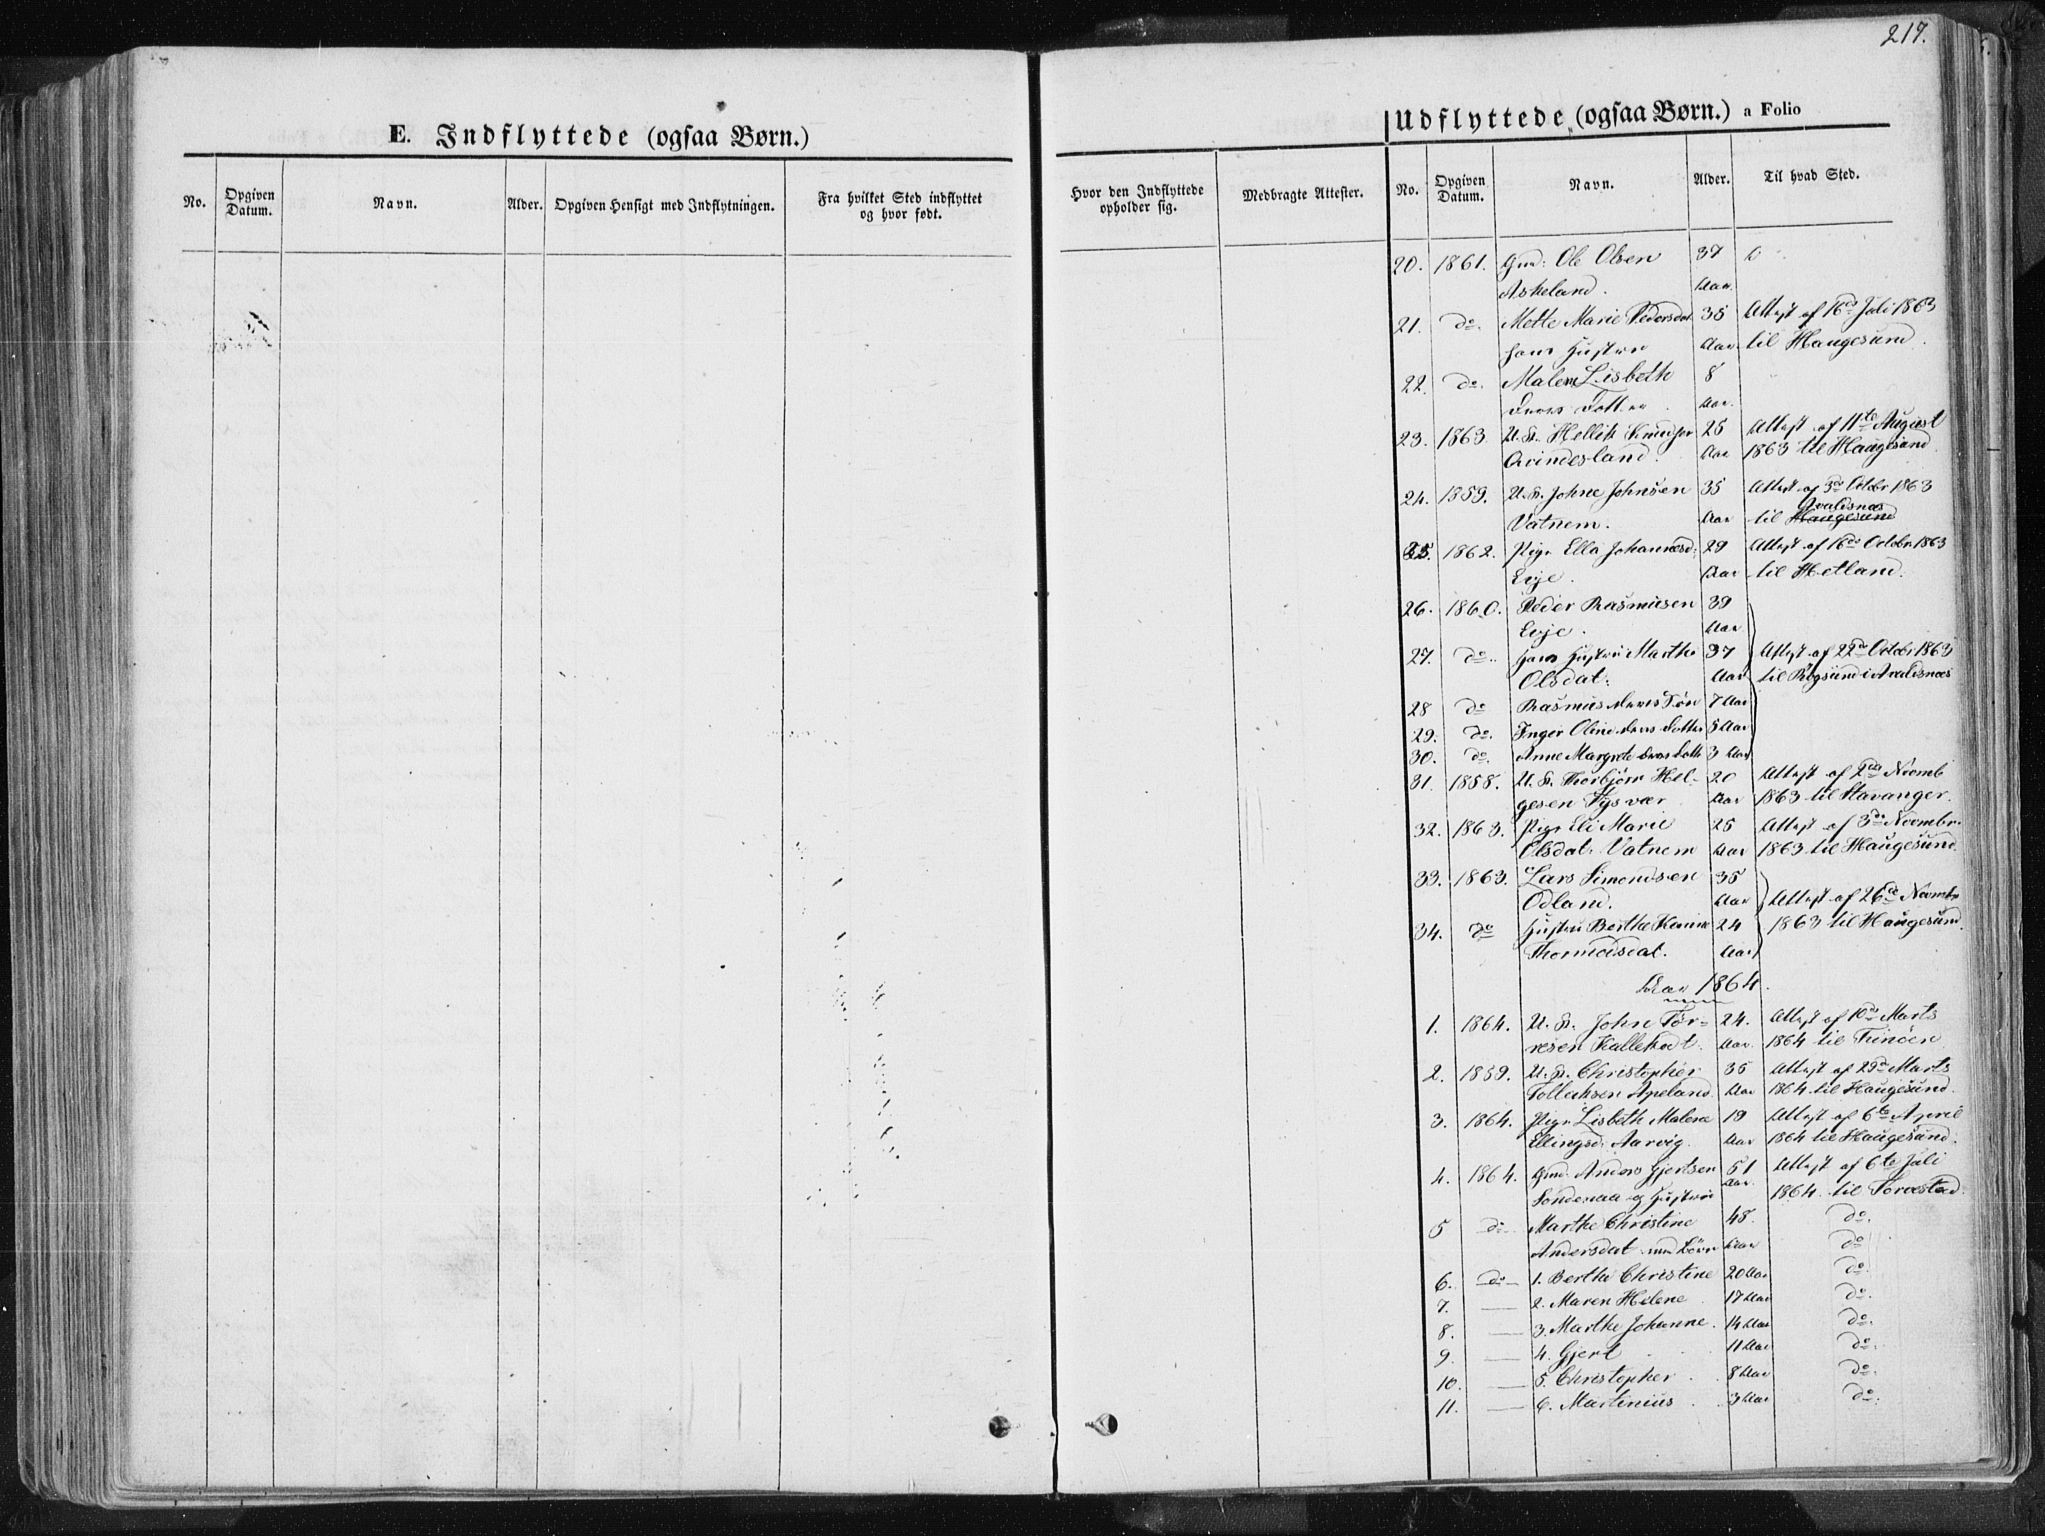 217.
E. Indflyttede (ogsaa Børn.)
Udflyttede (ogsaa Børn.) a Folio
No. Opgiven Datum. Navn. Alder. Opgiven Hensigt med Indflytningen. Fra hvilket Sted indflyttet og hvor født.
Hvor den Indflyttede opholder sig. Medbragte Attester. No. Opgiven Datum. Navn. Alder. Til hvad Sted.
20. 1861. Gmd: Ole Olsen 37
Askeland. Aar.
21. do. Mette Marie Pedersdat 35 Attest af 16de Juli 1863
hans Hustru Aar til Haugesund.
22. do. Malene Lisbeth 8
Aar.
23. 1863. U. K. 25 Attest af 11te August
Aar 1863 til Haugesund
24. 1859. U. K. Johne Johnsen 35 Attest af 3de Octobr 1863
Vatnem. Aar til Haugesund Avaldsnæs
25. 1862. Pige Ella Johannesd: 29 Attest af 16de Octobr 1863
Eeje. Aar til Hetland.
26. 1860. Peder Rasmusen 39
Eeje. Aar
27. do. Hans Hustru Marthe 37 Attest af 22de Octobr 1863
Olsdat: Aar til Røgsund i Avaldsnæs
28 do Rasmus deres Søn 7 Aar
29. do. Inger Oline deres Datter 5 Aar
30. do. Anne Margrete deres Datt 3 Aar
31. 1858. U. K. Thorbjørn Hel- 20 Attest af 2den Novemb
gesen Tysvær Aar 1863 til Stavanger.
32. 1863. Pige Eli Marie 25 Attest af 3de Novembr.
Olsdat. Vatnem Aar 1863 til Haugesund.
33. 1863. Lars Simondsen 35
Odland. Aar Attest af 26de Novembr
34. do Hustru Berthe Karine 24 1863 til Haugesund.
Thormodsdat. Aar
Aar 1864.
1. 1864. U. K. John Tør- 24. Attest af 10de Marts
resen Kallekodt. Aar. 1864 til Finöen
2. 1859. U. K. Christopher 35 Attest af 29de Marts
Tollaksen Apeland. Aar 1864 til Haugesund.
3. 1864. Pige Lisbeth Malene 19 Attest af 6te April
Ellingsd. Aarvig. Aar 1864 til Haugesund.
4. 1864. Gmd. Anders Gjertsen 51 Attest af 6te Juli
Søndenaa og Hustru Aar. 1864 til Torvestad.
5 do Marthe Christine 48. do.
Andersdat med Børn Aar do
6. do 1. Berthe Christine 20 Aar do.
7. — 2. Maren Helene 17 Aar do.
8. — 3. Marthe Johanne. 14 Aar do.
9. — 4. Gjert 11 Aar do.
10. — 5. Christopher 8 Aar do.
11. — 6. Martinius 3 Aar do.